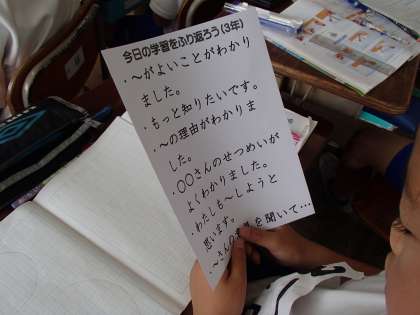 今日の学習をふり返ろう(3年)
・〜がよいことがわかり
ました。
・もっと知りたいです。
・〜の理由がわかりま
した。
・○○さんのせつめいが
よくわかりました。
・わたしも〜しようと
思います。
・〜さんの を聞いて…